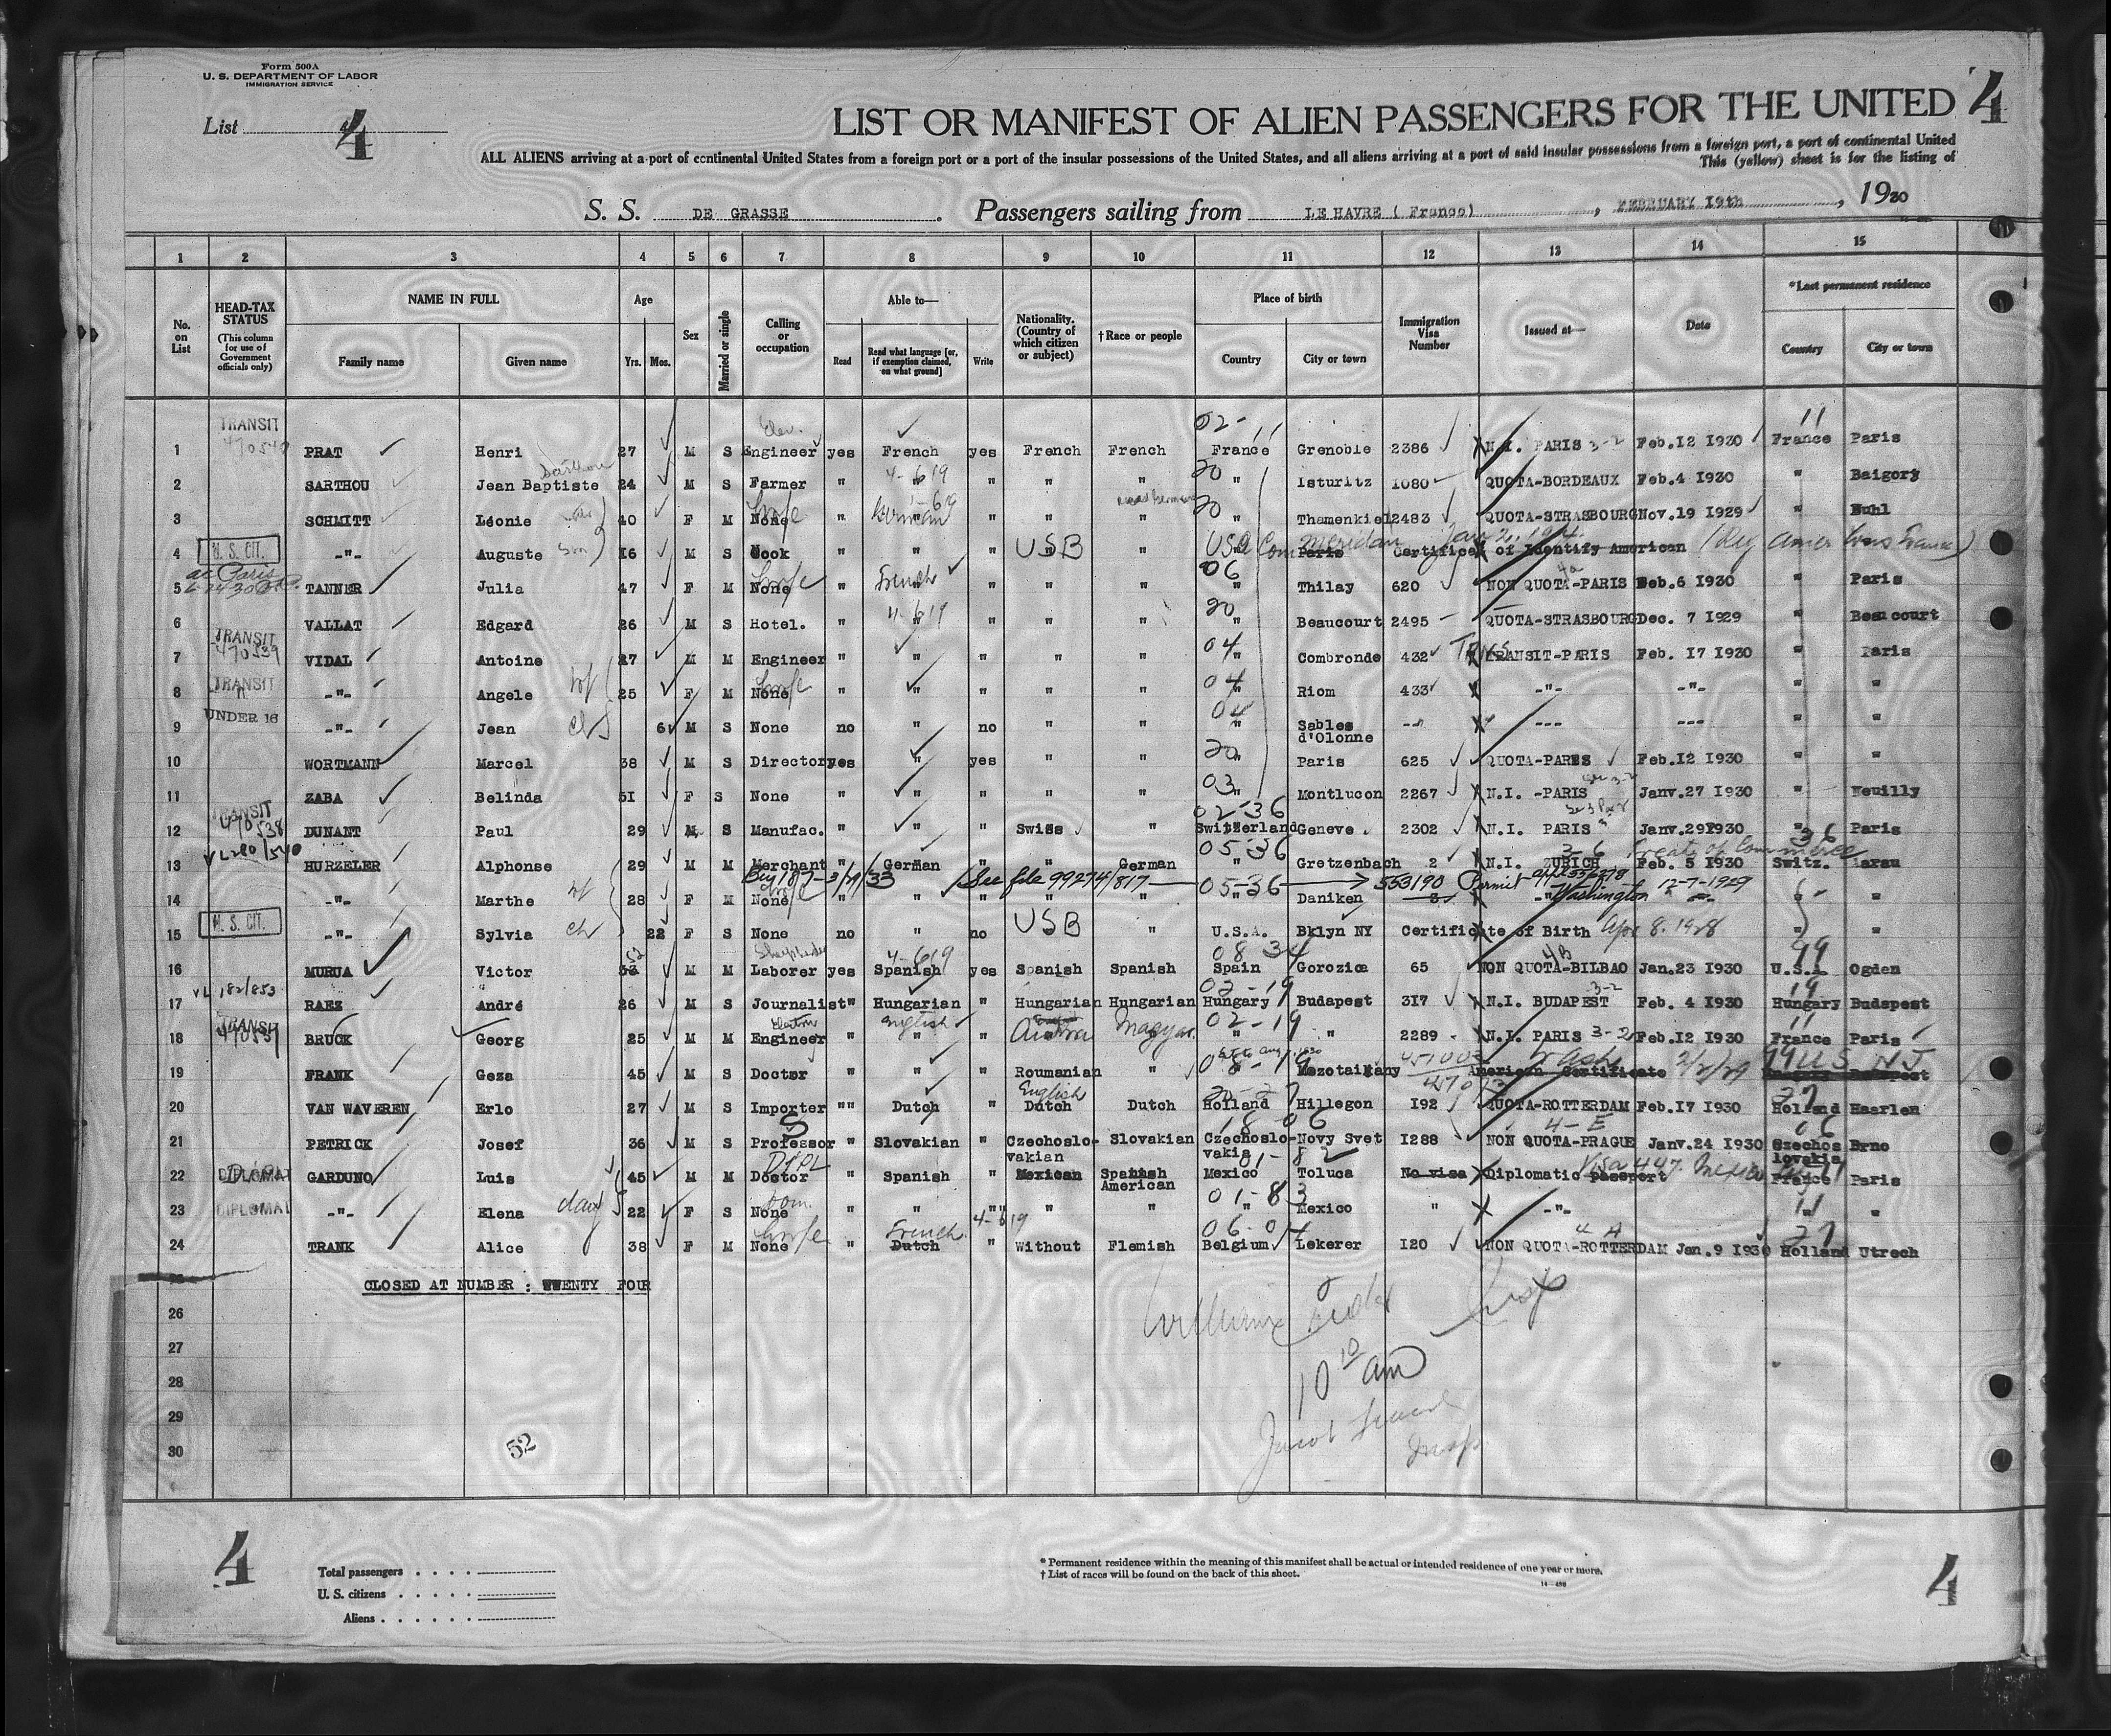 Form 500A
U. S. DEPARTMENT OF LABOR
IMMIGRATION SERVICE
List 4
LIST OR MANIFEST OF ALIEN PASSENGERS FOR THE UNITED 4
ALL ALIENS arriving at a port of continental United States from a foreign port or a port of the insular possessions of the United States, and all aliens arriving at a port of said insular possessions from a foreign port, a port of continental United
This (yellow) sheet is for the listing of
S. S. DE GRASSE. Passengers sailing from LE HAVRE ( France), FEBRUARY 19th, 1930
1 2 3 4 5 6 7 8 9 10 11 12 13 14 15
No. on List
HEAD-TAX STATUS (This column for use of Government officials only)
NAME IN FULL
Family name
Given name
Age
Yrs. Mos.
Sex
Married or single
Calling or occupation
Able to—
Read
Read what language [or, if exemption claimed, on what ground]
Write
Nationality. (Country of which citizen or subject)
†Race or people
Place of birth
Country
City or town
Immigration Visa Number
Issued at—
Date
*Last permanent residence
Country
City or town
TRANSIT 02- 11 11
1 PRAT Henri 27 M S Engineer yes French yes French French France Grenoble 2386 N.I. PARIS 3-2 Feb.12 1930 France Paris
4-619 20
2 SARTHOU Jean Baptiste 24 M S Farmer " " " " " " Isturitz 1080 QUOTA-BORDEAUX Feb.4 1930 " Baigory
20
3 SCHMITT Léonie 40 F M None " German " " " " Thamenkiel 2483 QUOTA-STRASBOURG Nov.19 1929 "
4 U. S. CIT. -"- Auguste Son 16 M S Cook " " " USB " USA Paris Meridian Certificat of Identify American "
06
5 TANNER Julia 47 F M None " French " " " " Thilay 620 NON QUOTA-PARIS Feb.6 1930 " Paris
4-619 20
6 VALLAT Edgard 26 M S Hotel. " " " " " " Beaucourt 2495 QUOTA-STRASBOURG Dec. 7 1929 " Beaucourt
TRANSIT 470539 04
7 VIDAL Antoine 27 M M Engineer " " " " " " Combronde 432 TRANSIT-PARIS Feb. 17 1930 " Paris
TRANSIT 04
8 -"- Angele wf 25 F M None " " " " " " Riom 433 -"- -"- " "
UNDER 16 04
9 -"- Jean ch 6 M S None no " no " " " Sables d'Olonne --- --- --- " "
20
10 WORTMANN Marcel 38 M S Director yes " yes " " " Paris 625 QUOTA-PARIS Feb.12 1930 " "
03
11 ZABA Belinda 51 F S None " " " " " " Montlucon 2267 N.I. -PARIS Janv.27 1930 " Neuilly
TRANSIT 470538 02-36
12 DUNANT Paul 29 M S Manufac. " " " Swiss " Switzerland Geneve 2302 N.I. PARIS Janv.29 1930 " Paris
05-36 3-6 Treaty of Commerce 36
13 HURZELER Alphonse 29 M M Merchant " German " " German " Gretzenbach 2 N.I. ZURICH Feb. 5 1930 Switz. Aarau
See file 99274/817 05-36 553190 Permit Washington 12-7-1929
14 -"- Marthe wf 28 F M None " " " " " " Daniken 3 -"- -"- " "
15 U. S. CIT. -"- Sylvia ch 22 F S None no " no USB " U.S.A. Bklyn NY Certificate of Birth Apr 8. 1928 " "
4-619 08 34 4B 99
16 MURUA Victor 53 52 M M Laborer yes Spanish yes Spanish Spanish Spain Gorozica 65 NON QUOTA-BILBAO Jan.23 1930 U.S.A. Ogden
02-19 3-2 19
17 RAEZ André 26 M S Journalist " Hungarian " Hungarian Hungarian Hungary Budapest 317 N.I. BUDAPEST Feb. 4 1930 Hungary Budapest
TRANSIT 470537 02-19 11
18 BRUCK Georg 25 M S Engineer " English " Austria Magyar " " 2289 N.I. PARIS 3-2 Feb.12 1930 France Paris
08-19
19 FRANK Geza 45 M S Doctor " " " Roumanian " Mezotaikany American Certificate 99 U S N.J
English 27
20 VAN WAVEREN Erlo 27 M S Importer "" Dutch " Dutch Dutch Holland Hillegon 192 QUOTA-ROTTERDAM Feb.17 1930 Holland Haarlen
18-06 4-E 06
21 PETRICK Josef 36 M S Professor " Slovakian " Czechoslovakian Slovakian Czechoslovakia Novy Svet 1288 NON QUOTA-PRAGUE Janv.24 1930 Czechoslovakia Brno
DIPL 01-82 Visa 447 Mexico
22 DIPLOMAT GARDUNO Luis 45 M M Doctor " Spanish " Mexican Spanish American Mexico Toluca No visa Diplomatic passport France Paris
01-83 11
23 DIPLOMAT -"- Elena 22 F S None " " "" " " " Mexico " -"- " "
French 4-619 06-04 4 A 27
24 TRANK Alice 38 F M None " Dutch " Without Flemish Belgium Lekerer 120 NON QUOTA-ROTTERDAM Jan.9 1930 Holland Utrech
CLOSED AT NUMBER : TWENTY FOUR
26
27
28
29
30
10 10 am
52
4
Total passengers
U. S. citizens
Aliens
* Permanent residence within the meaning of this manifest shall be actual or intended residence of one year or more.
† List of races will be found on the back of this sheet.
14—430
4